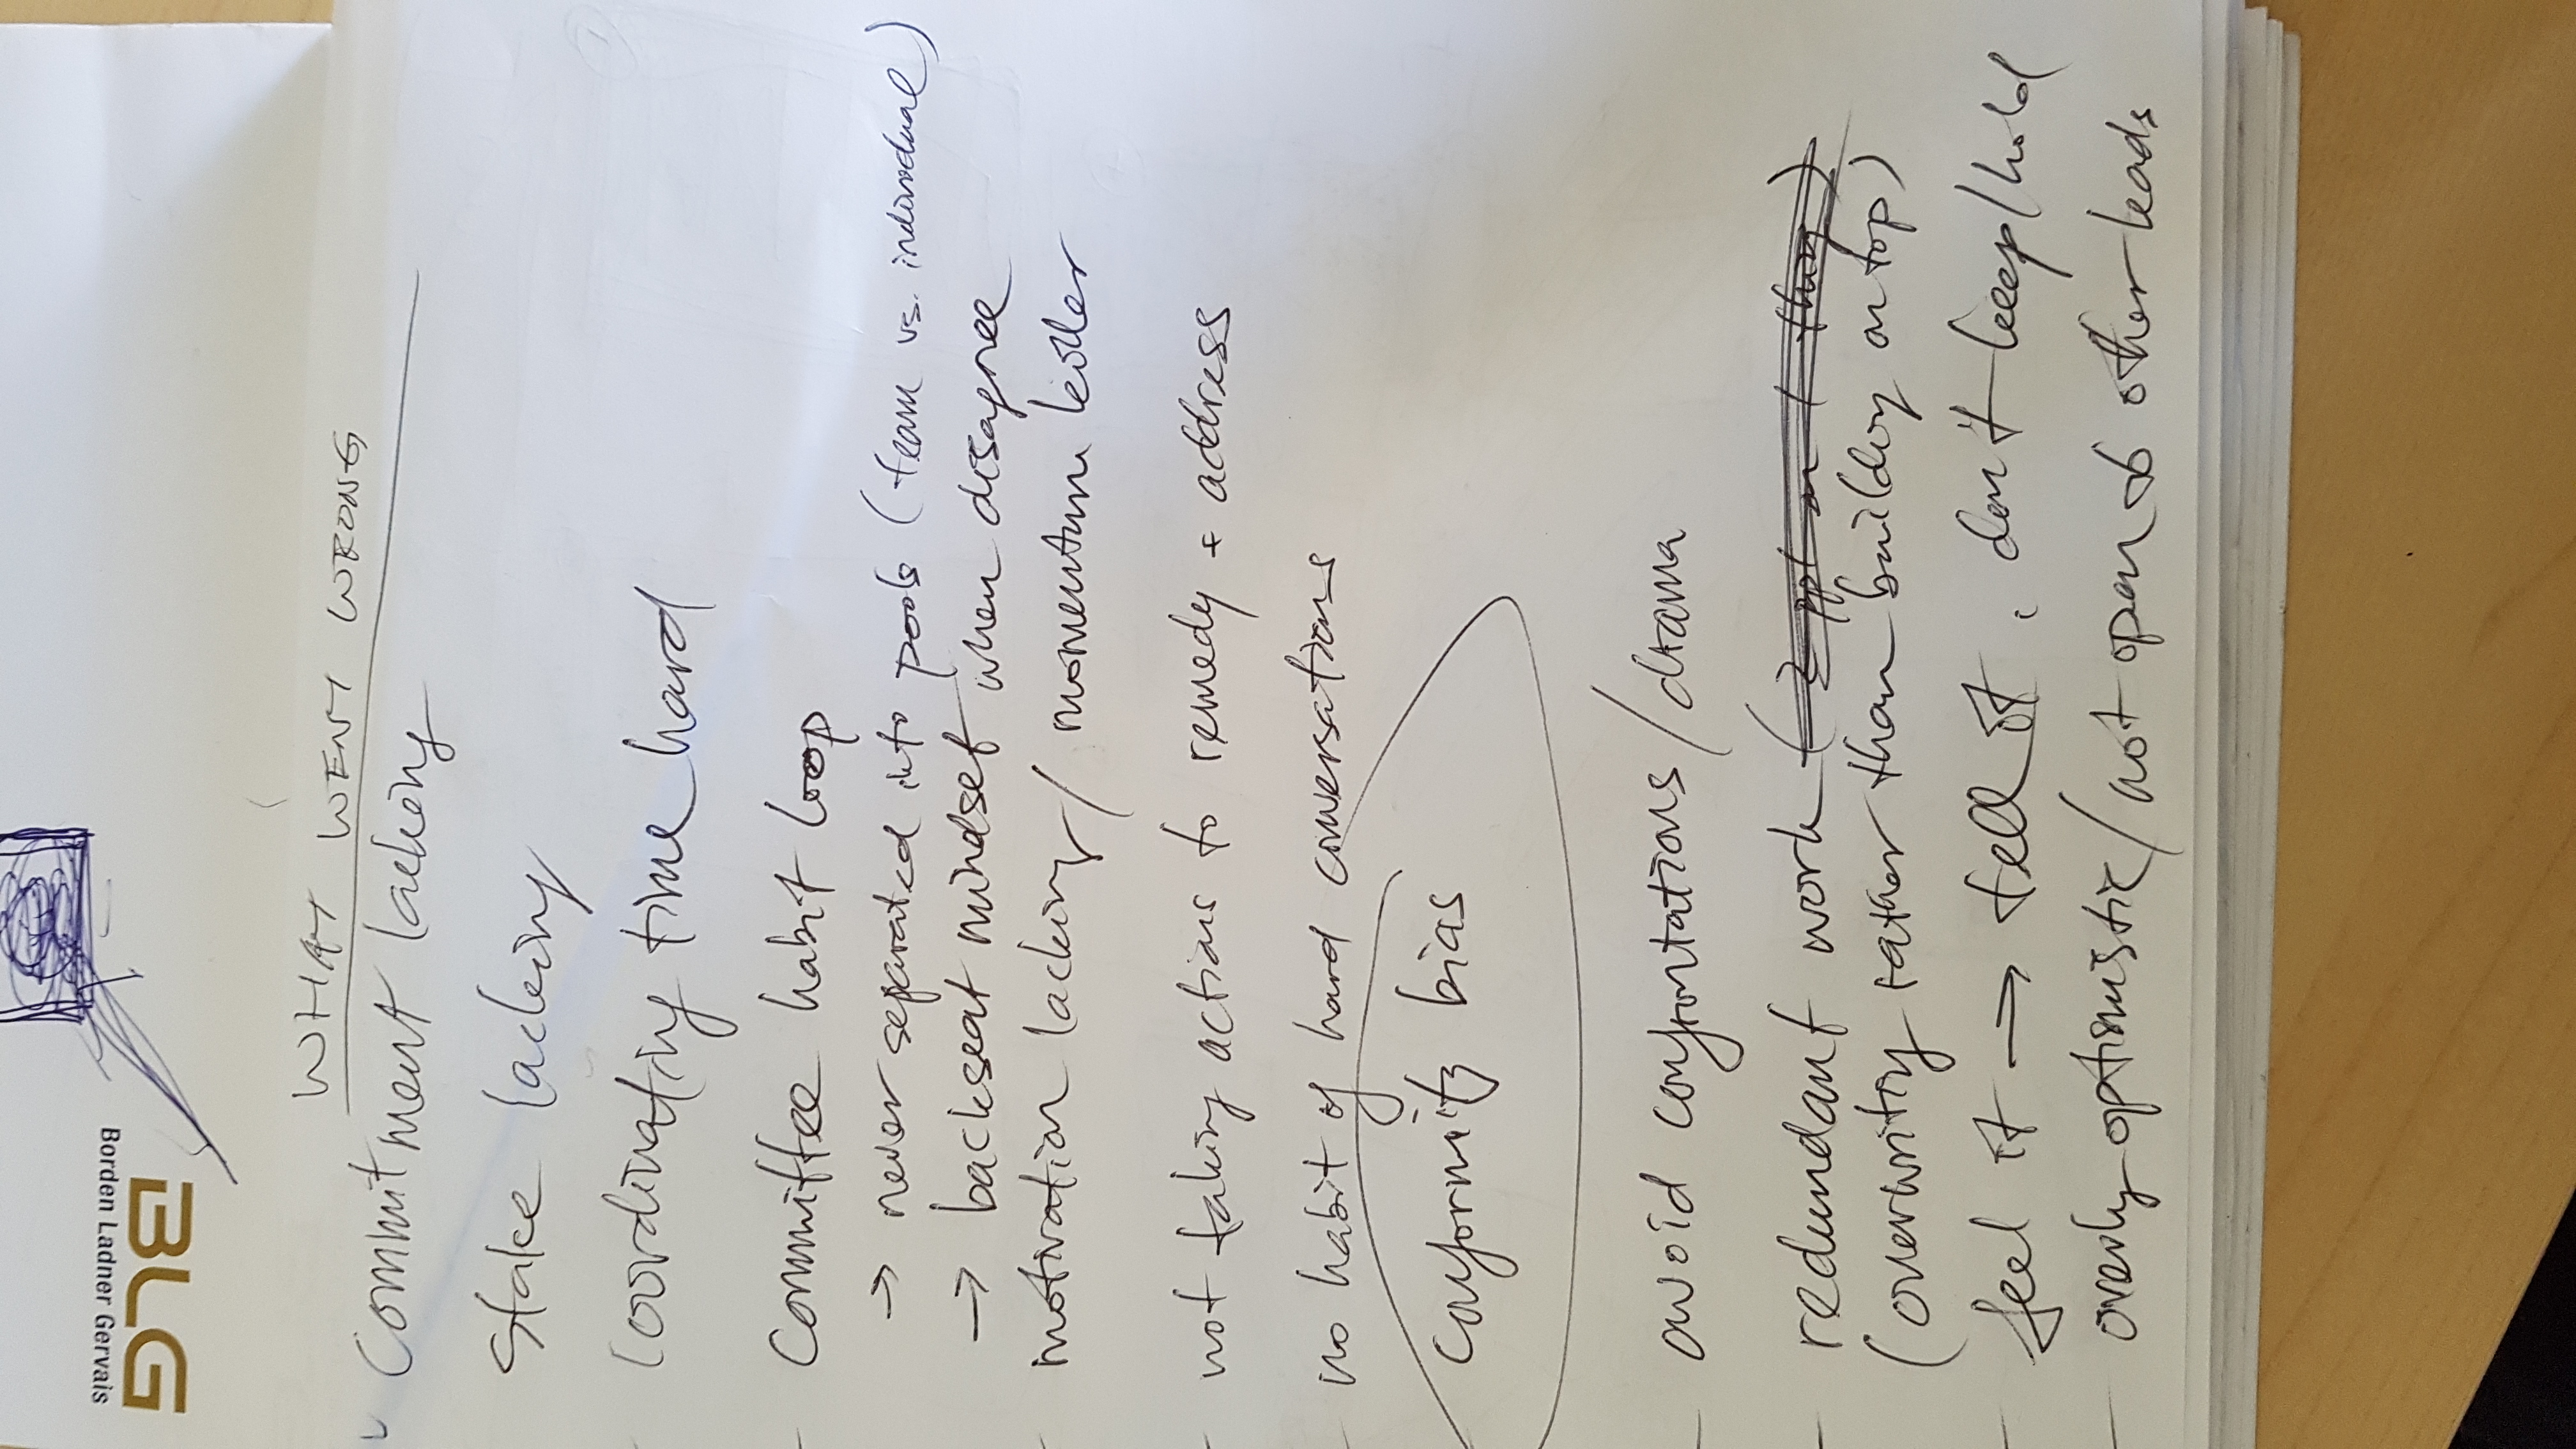 Borden Ladner Gervais
BLG
WHAT WENT WRONG
Commitment lacking
Stake lacking
Coordinating time hard
- Committee habit loop
→ never separated into pools (team vs. individual)
→ backseat mindset when disagree
- motivation lacking / momentum killer
- not taking actions to remedy + address
- no habit of hard conversations
conformity bias
- avoid confrontations / drama
- redundant work (2 ppl on 1 thing)
(overwriting rather than building on top)
- feel it → tell it, don't keep/hold
- overly optimistic / not open to other leads